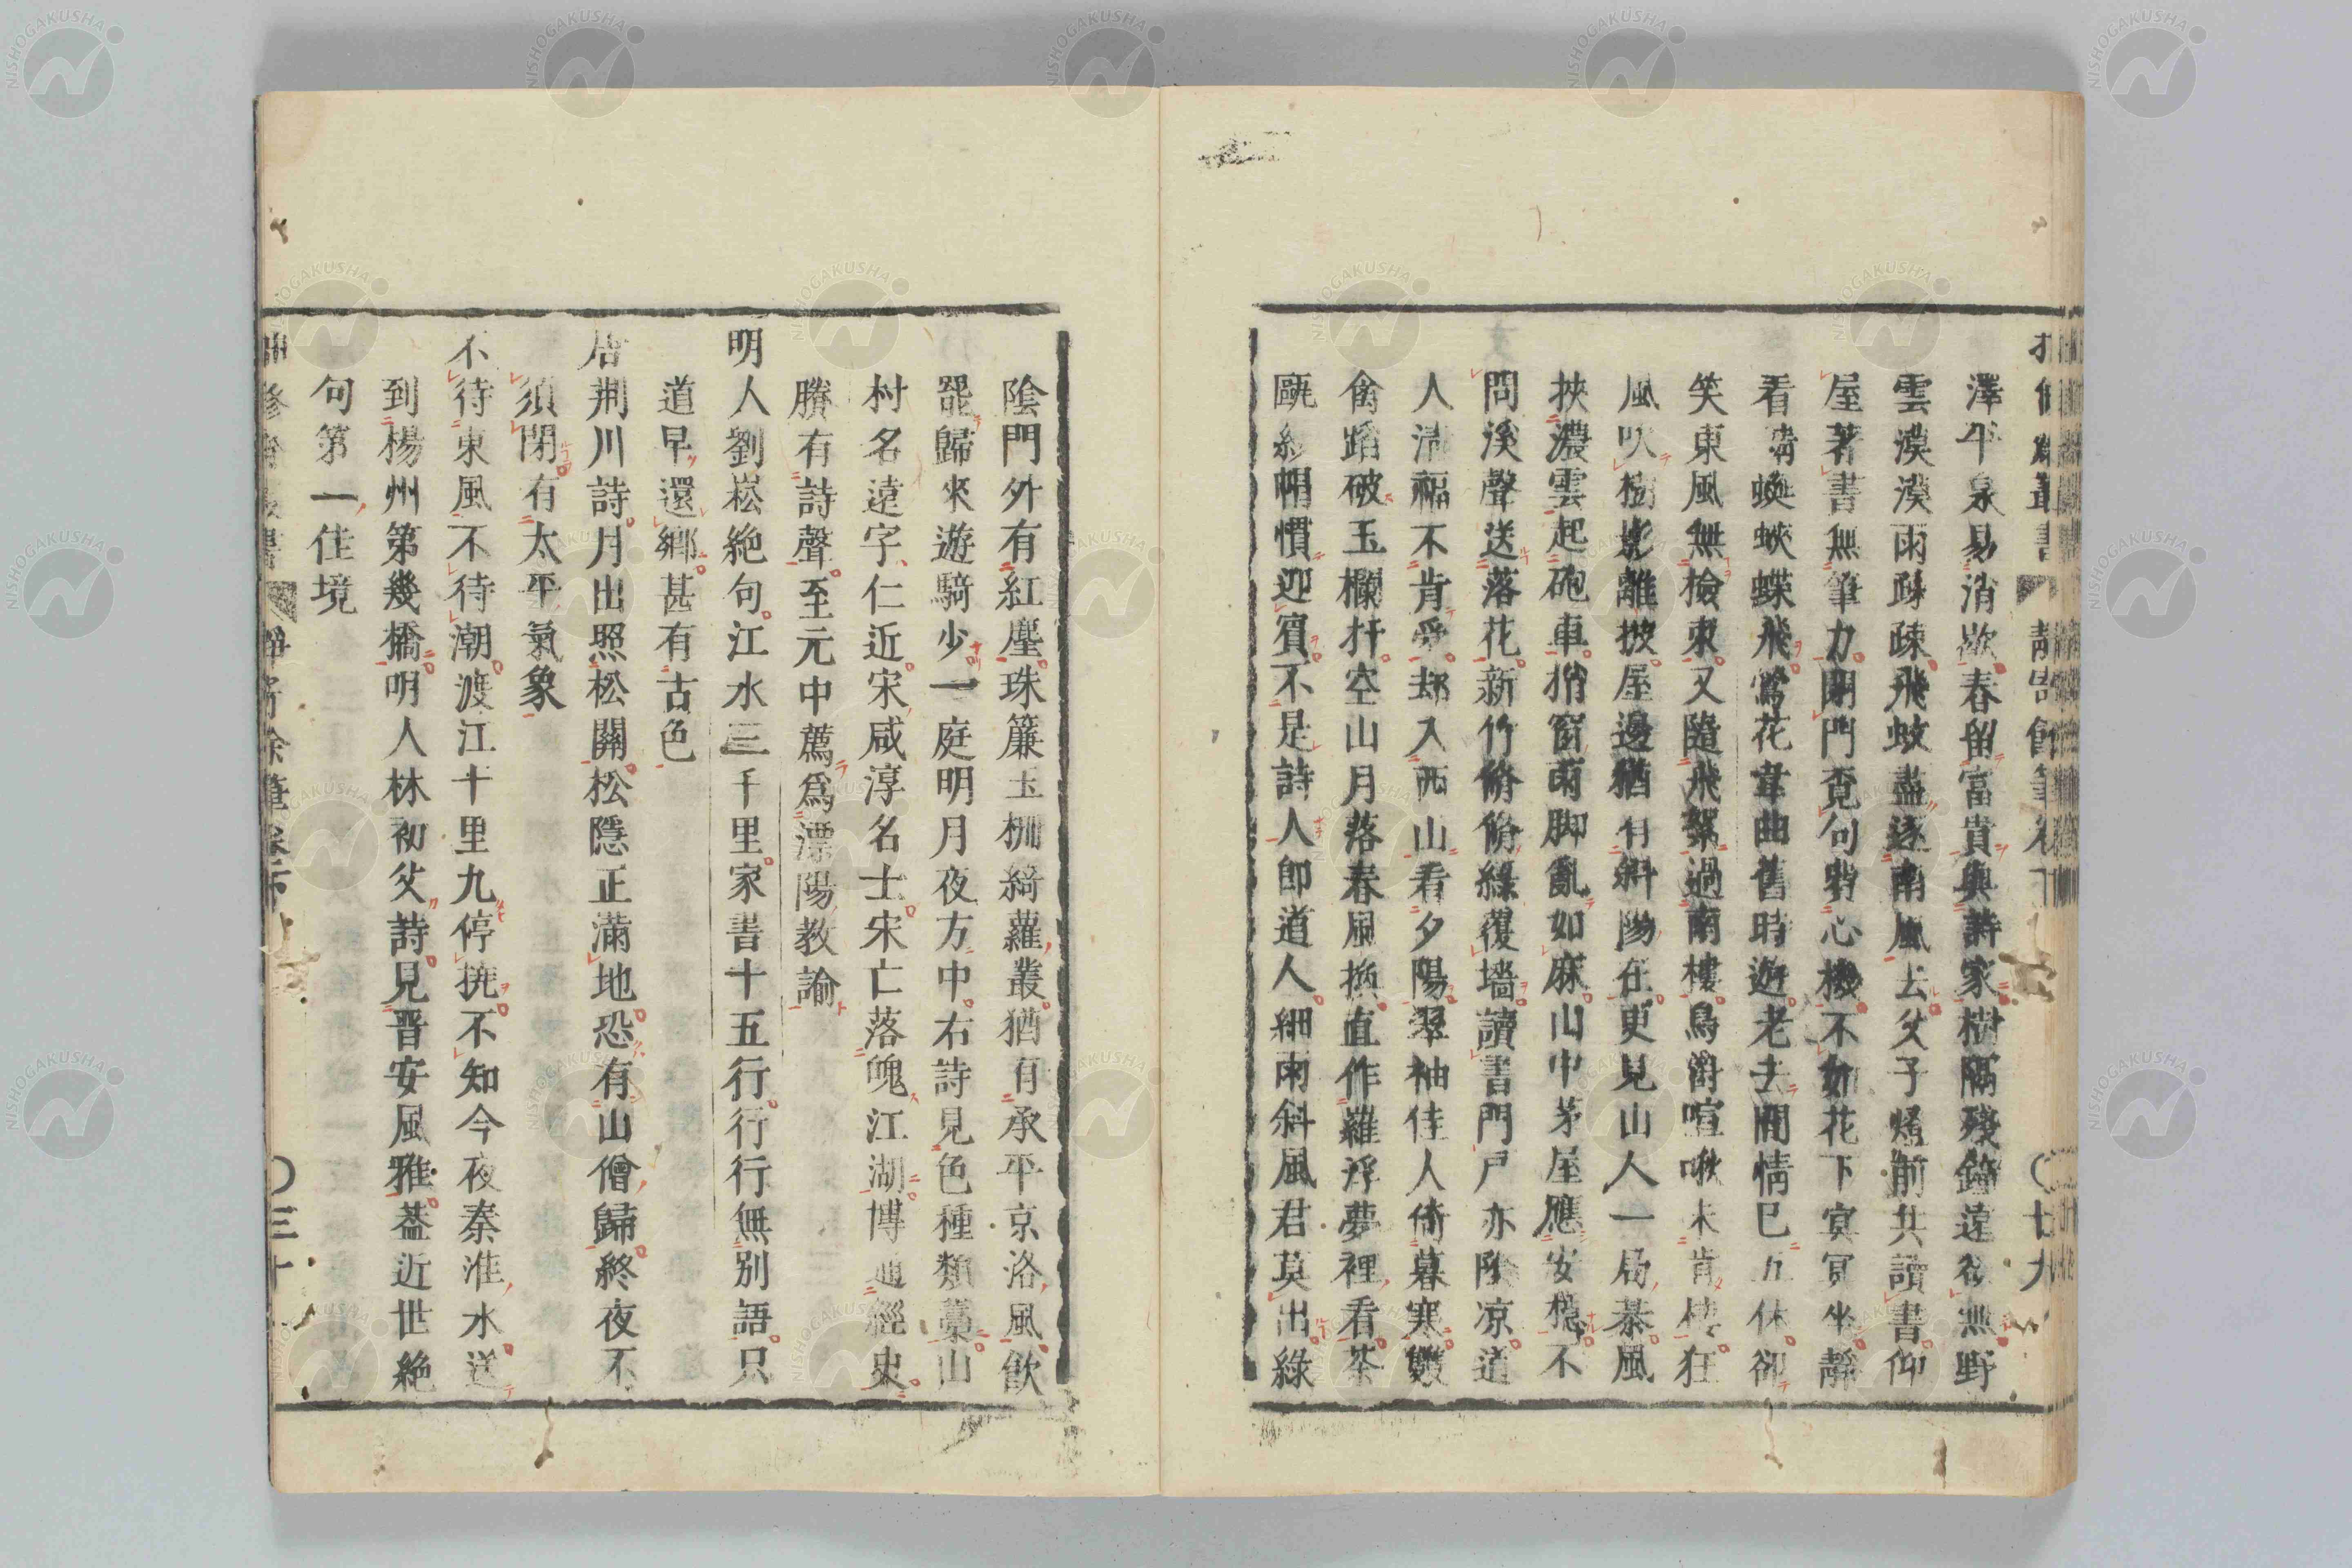 澤平泉易消歇春留富貴與詩家樹隔殘鐘遠欲無野
雲漠漠雨疎疎飛蚊盡逐南風去父子燈前共讀書仰
屋著書無筆力閉門覓句費心機不如花下冥冥坐靜
看蜻蜓蛺蝶飛鶯花韋曲舊時遊老去閒情已五休卻
笑東風無檢束又隨飛絮過南樓鳥衝喧啾未肯棲狂
風吹樹影離披屋邊猶有斜陽在更見山人一局棊風
挾濃雲起砲車捎窗雨脚亂如麻山中茅屋應安穩不
問溪聲送落花新竹脩脩綠覆墻讀書門戸亦陰凉道
人清福不肯受却入西山看夕陽翠袖佳人倚暮寒雙
禽蹈破玉欄扞空山月落春風換直作羅浮夢裡看茶
甌紗帽慣迎賓不是詩人卽道人細雨斜風君莫出綠
陰門外有紅塵珠簾玉柵綺羅叢猶有承平京洛風飮
罷歸來遊騎少一庭明月夜方中右詩見色種類藁山
村名遠字仁近宋咸淳名士宋亡落魄江湖博通經史
賸有詩聲至元中薦爲漂陽敎諭
明人劉崧絶句江水三千里家書十五行行行無別語只
道早還鄉甚有古色
唐荆川詩月出照松關松隱正滿地恐有山僧歸終夜不
須閉有太平氣象
不待東風不待潮渡江十里九停撓不知今夜秦淮水送
到楊州第幾橋明人林初父詩見晋安風雅葢近世絶
句第一佳境